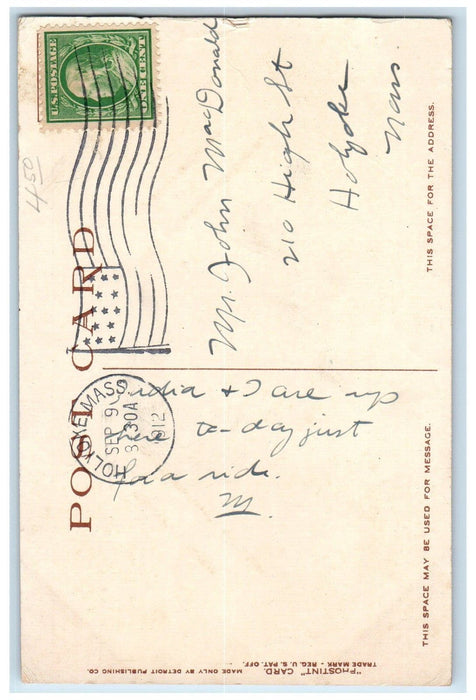 U.S. POSTAGE
ONE CENT
4.50
POST CARD
HOLYOKE MASS.
SEP 9
8 30A
1912
Mr. John MacDonald
210 High St
Holyoke
Mass
THIS SPACE FOR THE ADDRESS.
& I are up
here to-day just
for a ride.
M.
THIS SPACE MAY BE USED FOR MESSAGE.
"PHOSTINT" CARD
TRADE MARK - REG. U. S. PAT. OFF.
MADE ONLY BY DETROIT PUBLISHING CO.